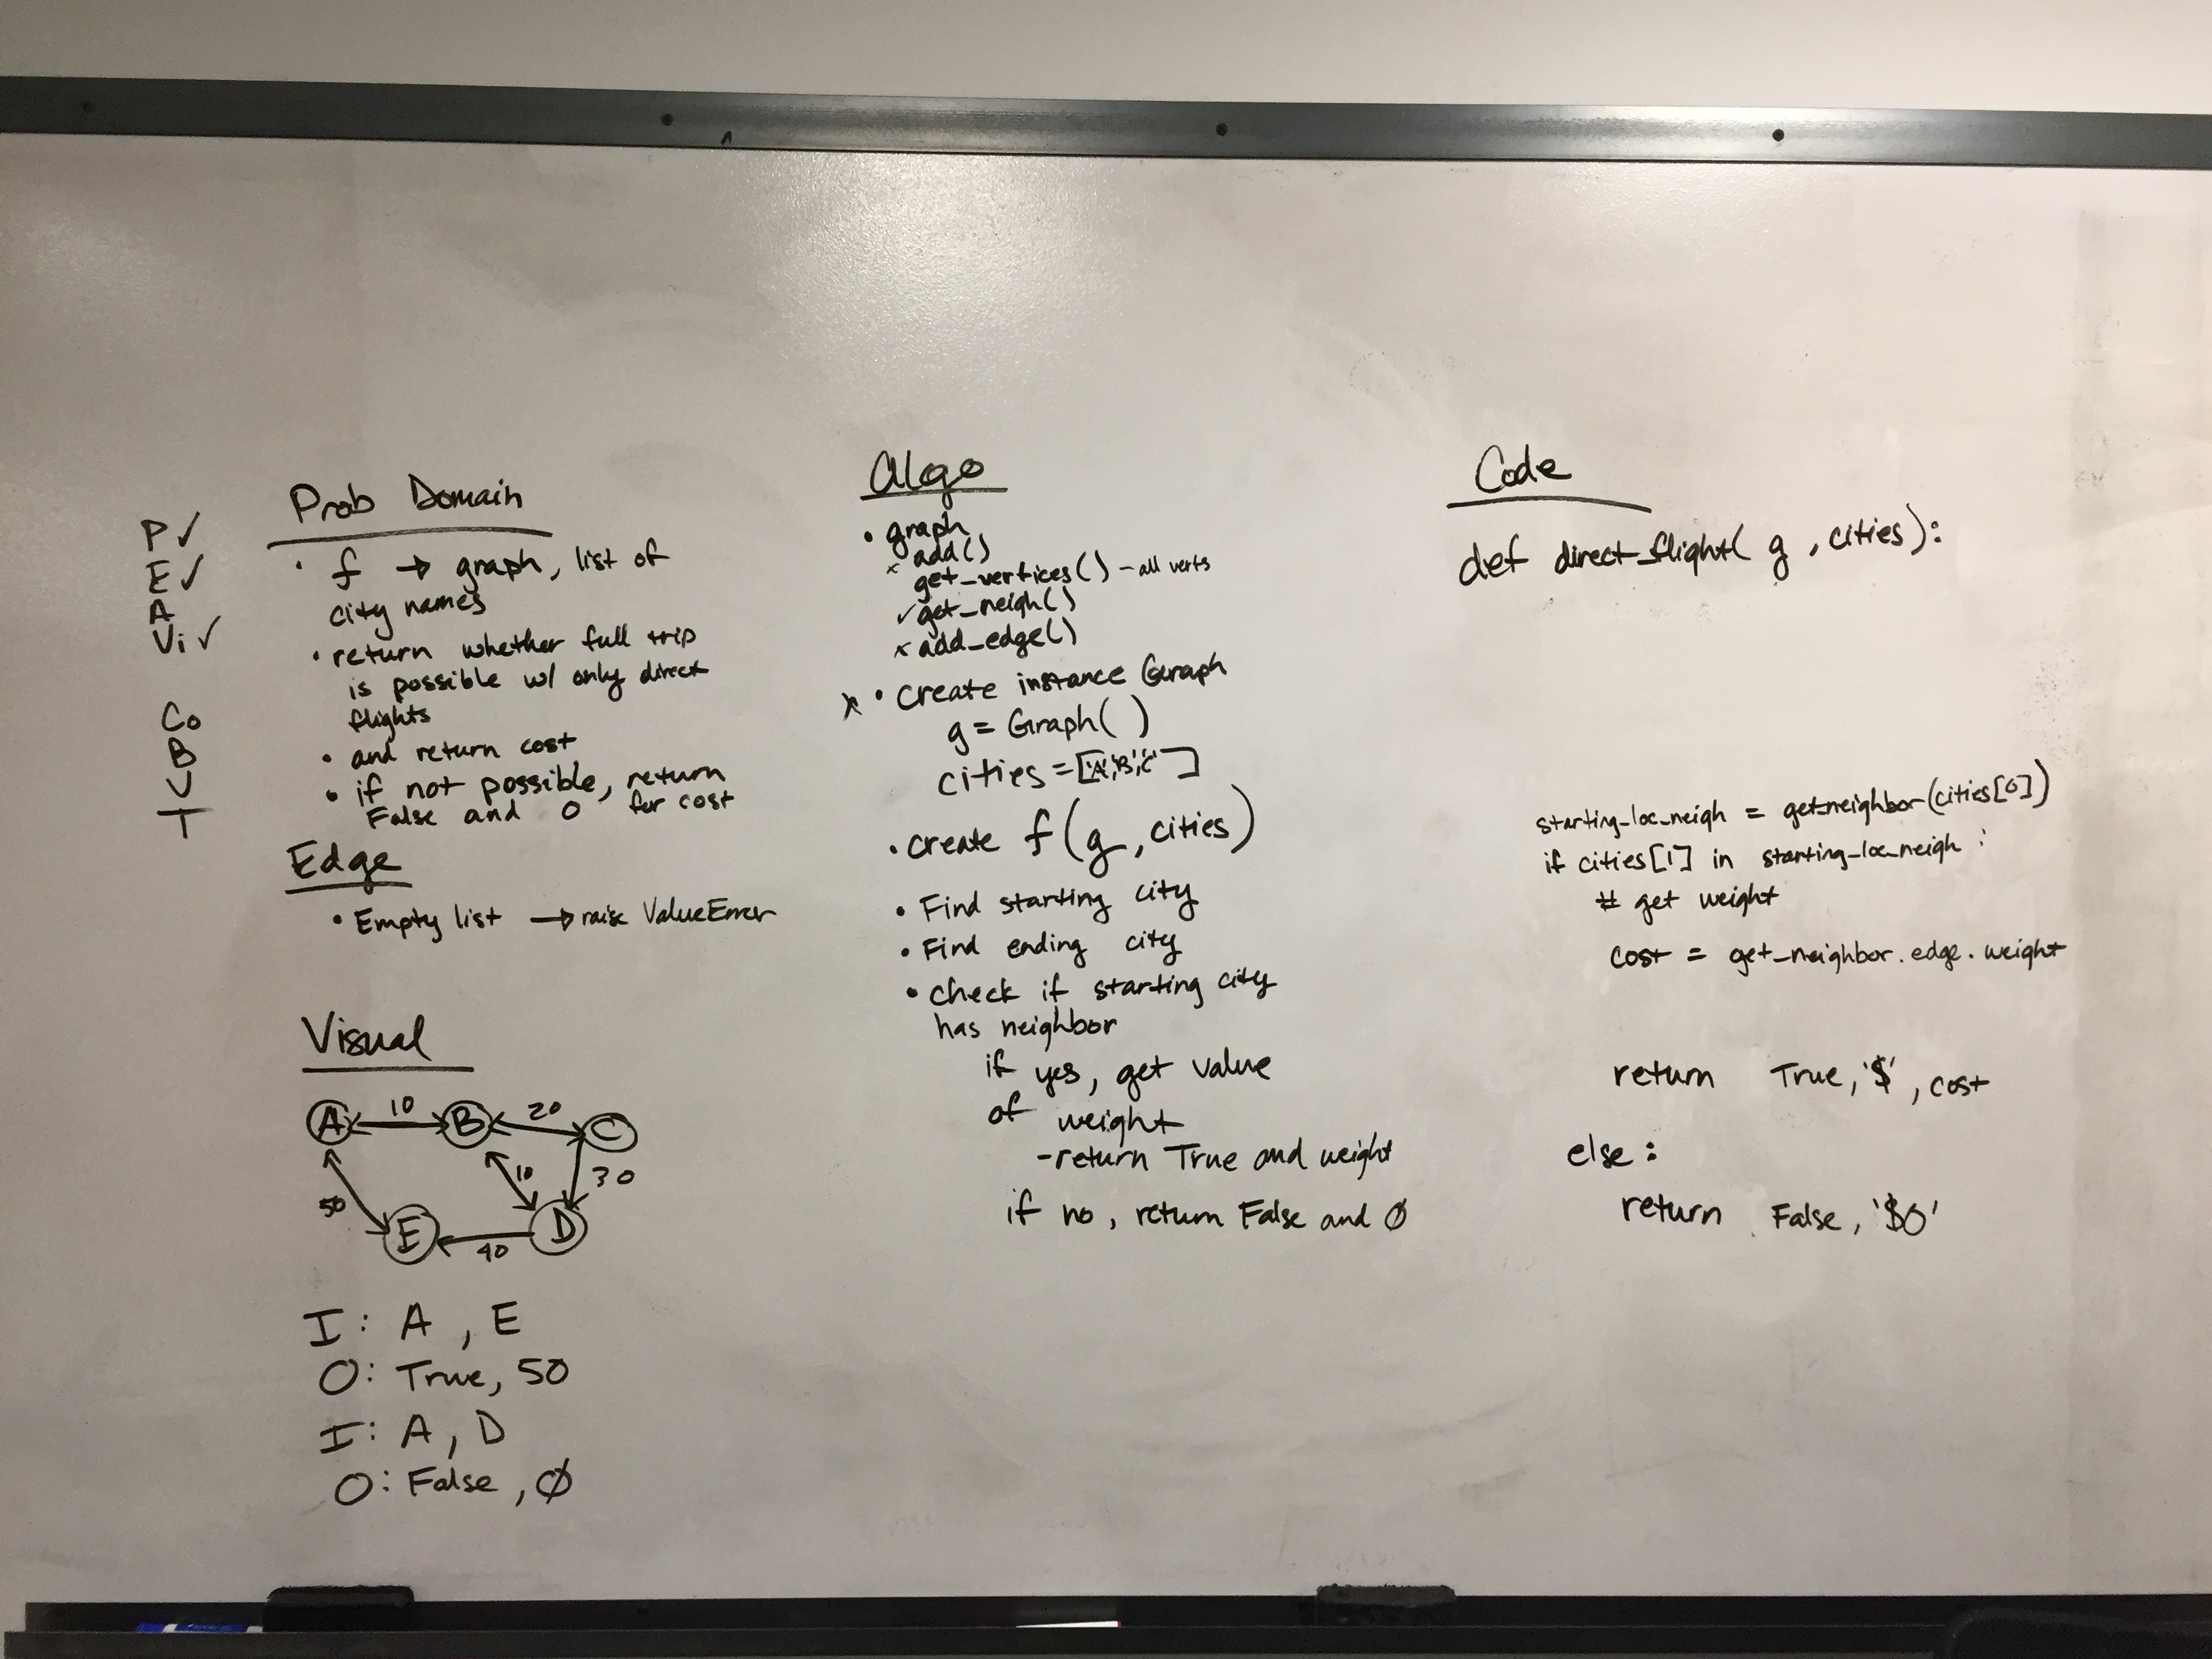 P ✓
E ✓
A
Vi ✓
Co
B
U
T
Prob Domain
• f → graph, list of
city names
• return whether full trip
is possible w/ only direct
flights
• and return cost
• if not possible, return
False and 0 for cost
Edge
• Empty list → raise ValueError
Visual
A 10 B 20 C
50 10 30
E 40 D
I: A, E
O: True, 50
I: A, D
O: False, Ø
Algo
• graph
x add()
get_vertices() - all verts
✓ get_neigh()
x add_edge()
x • Create instance Graph
g = Graph( )
cities = ['A','B','C']
• create f(g, cities)
• Find starting city
• Find ending city
• check if starting city
has neighbor
if yes, get value
of weight
- return True and weight
if no, return False and Ø
Code
def direct_flight( g, cities):
starting_loc_neigh = get_neighbor(cities[0])
if cities[1] in starting_loc_neigh :
# get weight
cost = get_neighbor.edge.weight
return True, '$', cost
else:
return False, '$0'